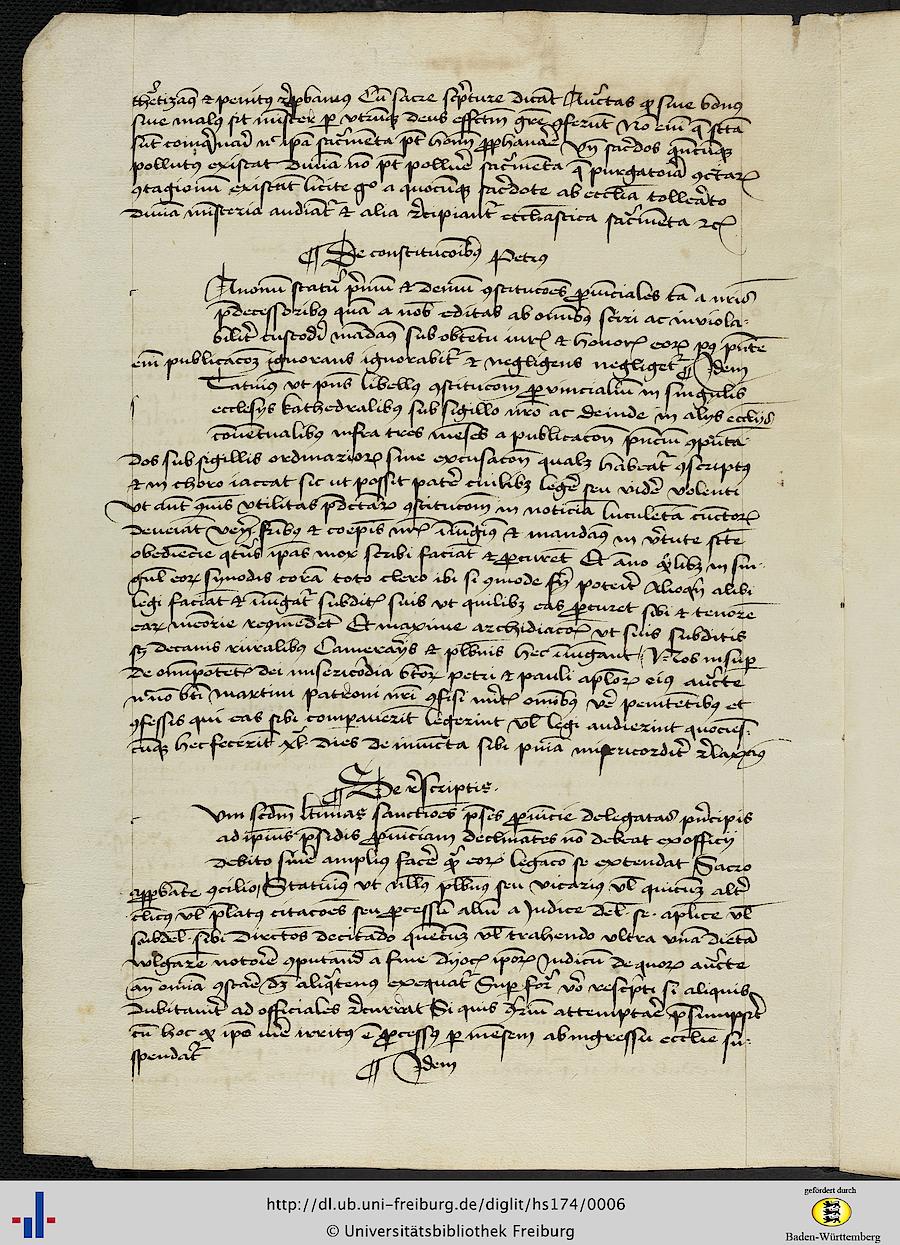 sine malus sit minister per deus effectum
sunt ipsa sacramenta
pollutus existat divina non potest polluere sacramenta
contagionum existant licite ergo a quocumque sacerdote ab ecclesia tollerato
divina misteria audiant et alia recipiant ecclesiastica sacramenta
¶ De constitucionibus Petrus
Canonum statuta et demum constituciones provinciales tam a nostris
predecessoribus quam a nobis editas ab omnibus sciri ac inviola-
biliter custodiri mandamus sub obtentu et honoris eorum post
enim publicacionem ignorans ignorabitur et negligens negligetur ¶ Idem
Statuimus ut presens libellus constitucionum provincialium in singulis
ecclesiis kathedralibus sub sigillo nostro ac deinde in aliis ecclesiis
conventualibus infra tres menses a publicacione presencium computan-
dos sub sigillis ordinariorum sine excusacione qualibet habeatur conscriptus
et in choro iaceat sic ut possit patere cuilibet legere seu videre volenti
Ut autem utilitas predictarum constitucionum in noticiam luculentam cunctorum
deveniat fratribus et coepiscopis nostris iniungimus et mandamus in virtute sancte
obediencie quatenus ipsas mox scribi faciant et procurent Et anno quolibet in sin-
gulis eorum synodis coram toto clero ibi si commode fieri poterit Alioquin alibi
legi faciant et iniungant subditis suis ut quilibet eas procuret sibi et tenorem
earum memorie recommendet Et maxime archidiaconi ut suis subditis
scilicet decanis ruralibus Camerariis et plebanis hec iniungant Nos insuper
de omnipotentis dei misericordia beatorum petri et pauli apostolorum eius auctoritate
necnon beati martini patroni nostri confisi meritis omnibus vere penitentibus et
confessis qui eas sibi comparaverint legerint vel legi audierint quociens-
cumque hec fecerint xl dies de iniuncta sibi penitencia misericorditer relaxamus
¶ De rescriptis.
Cum secundum legittimas sanctiones preses provincie delegatus principis
ad ipsius presidis provinciam declinantes non debeat ex officii
debito sinere amplius facere quam eorum legacio se extendat Sacro
approbante concilio Statuimus ut nullus plebanus seu vicarius vel quicumque alter
clericus vel prelatus citaciones seu processum alium a Judice del. se. apostolice vel
subdel. sibi directos decitando quemcumque vel trahendo ultra unam dietam
vulgarem notorie computandam a fine dyocesis ipsorum Judicum de quorum auctoritate
ante omnia constare debet aliquatenus exequatur Super forma vero rescripti si aliquis
dubitaverit ad officiales recurrat Si quis contrarium attemptare presumpserit
cum hoc quod ipso iure irritus est processus per mensem ab ingressu ecclesie su-
spendatur
¶ Idem
http://dl.ub.uni-freiburg.de/diglit/hs174/0006
© Universitätsbibliothek Freiburg
gefördert durch
Baden-Württemberg